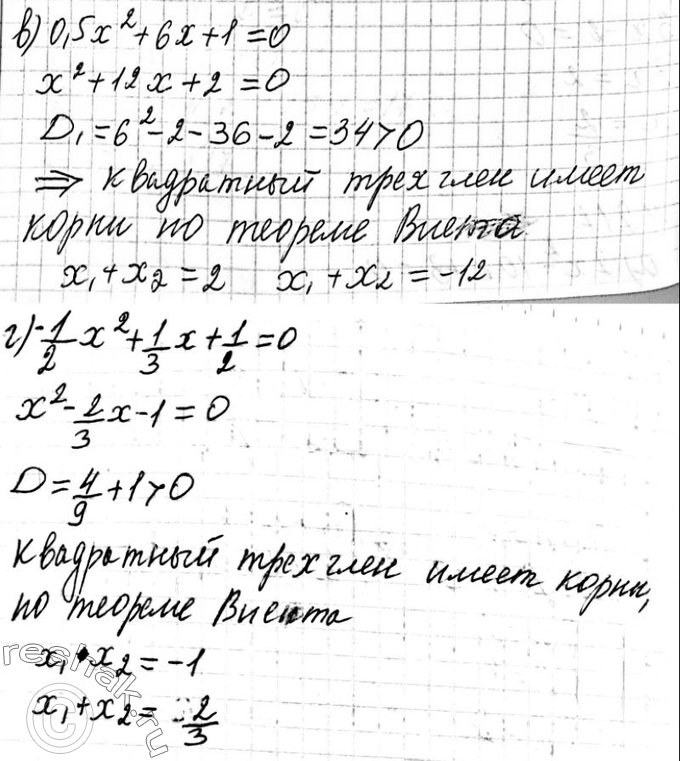 в) 0,5x²+6x+1=0
x²+12x+2=0
D₁=6²-2-36-2=34>0
⇒ квадратный трехглен имеет
корни по теореме Виента
x₁+x₂=2 x₁+x₂=-12
г) -1/2 x²+1/3 x+1/2=0
x²-2/3 x-1=0
D=4/9+1>0
квадратный трехглен имеет корни,
по теореме Виента
x₁•x₂=-1
x₁+x₂= -2/3
reshak.ru
©